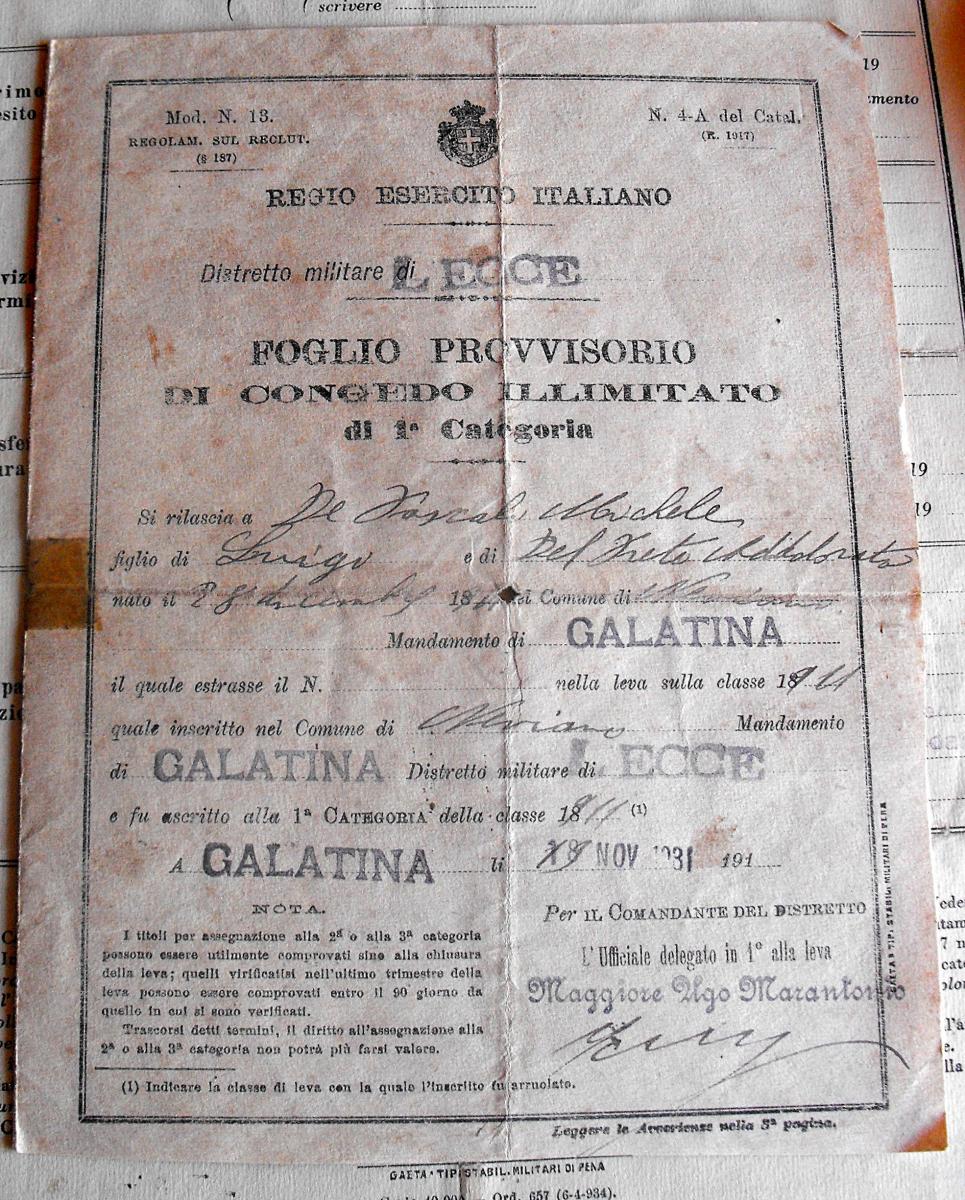 scrivere
Mod. N. 13.
REGOLAM. SUL RECLUT.
(§ 187)
N. 4-A del Catal.
(R. 1917)
REGIO ESERCITO ITALIANO
Distretto militare di LECCE
FOGLIO PROVVISORIO
DI CONGEDO ILLIMITATO
di 1ª Categoria
Si rilascia a De Pascali Michele
figlio di Luigi e di Del Prete Addolorata
nato il 28 dicembre 18 nel Comune di Neviano
Mandamento di GALATINA
il quale estrasse il N. nella leva sulla classe 1911
quale inscritto nel Comune di Neviano Mandamento
di GALATINA Distretto militare di LECCE
e fu ascritto alla 1ª CATEGORIA della classe 1911 (1)
A GALATINA li NOV 1931 191
NOTA.
I titoli per assegnazione alla 2ª o alla 3ª categoria
possono essere utilmente comprovati sino alla chiusura
della leva; quelli virificatisi nell'ultimo trimestre della
leva possono essere comprovati entro il 90 giorno da
quello in cui si sono verificati.
Trascorsi detti termini, il diritto all'assegnazione alla
2ª o alla 3ª categoria non potrà più farsi valere.
(1) Indicare la classe di leva con la quale l'inscritto fu arruolato.
Per IL COMANDANTE DEL DISTRETTO
L'Ufficiale delegato in 1° alla leva
Maggiore Ugo Marantonio
GAETA TIP. STABIL. MILITARI DI PENA
Leggere le Avvertenze nella 3ª pagina.
GAETA - TIP. STABIL. MILITARI DI PENA
Ord. 657 (6-4-934).
19
19
19